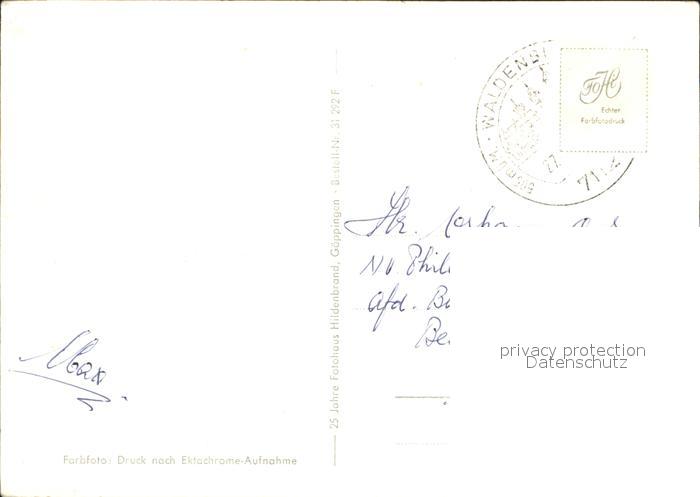 WALDENS
71
27.
FoHi
Echter
Farbfotodruck
25 Jahre Fotohaus Hildenbrand, Göppingen - Bestell-Nr. 31 292 F
N.V. Phil
Afd. B
Be
privacy protection
Datenschutz
Max
Farbfoto: Druck nach Ektachrome-Aufnahme